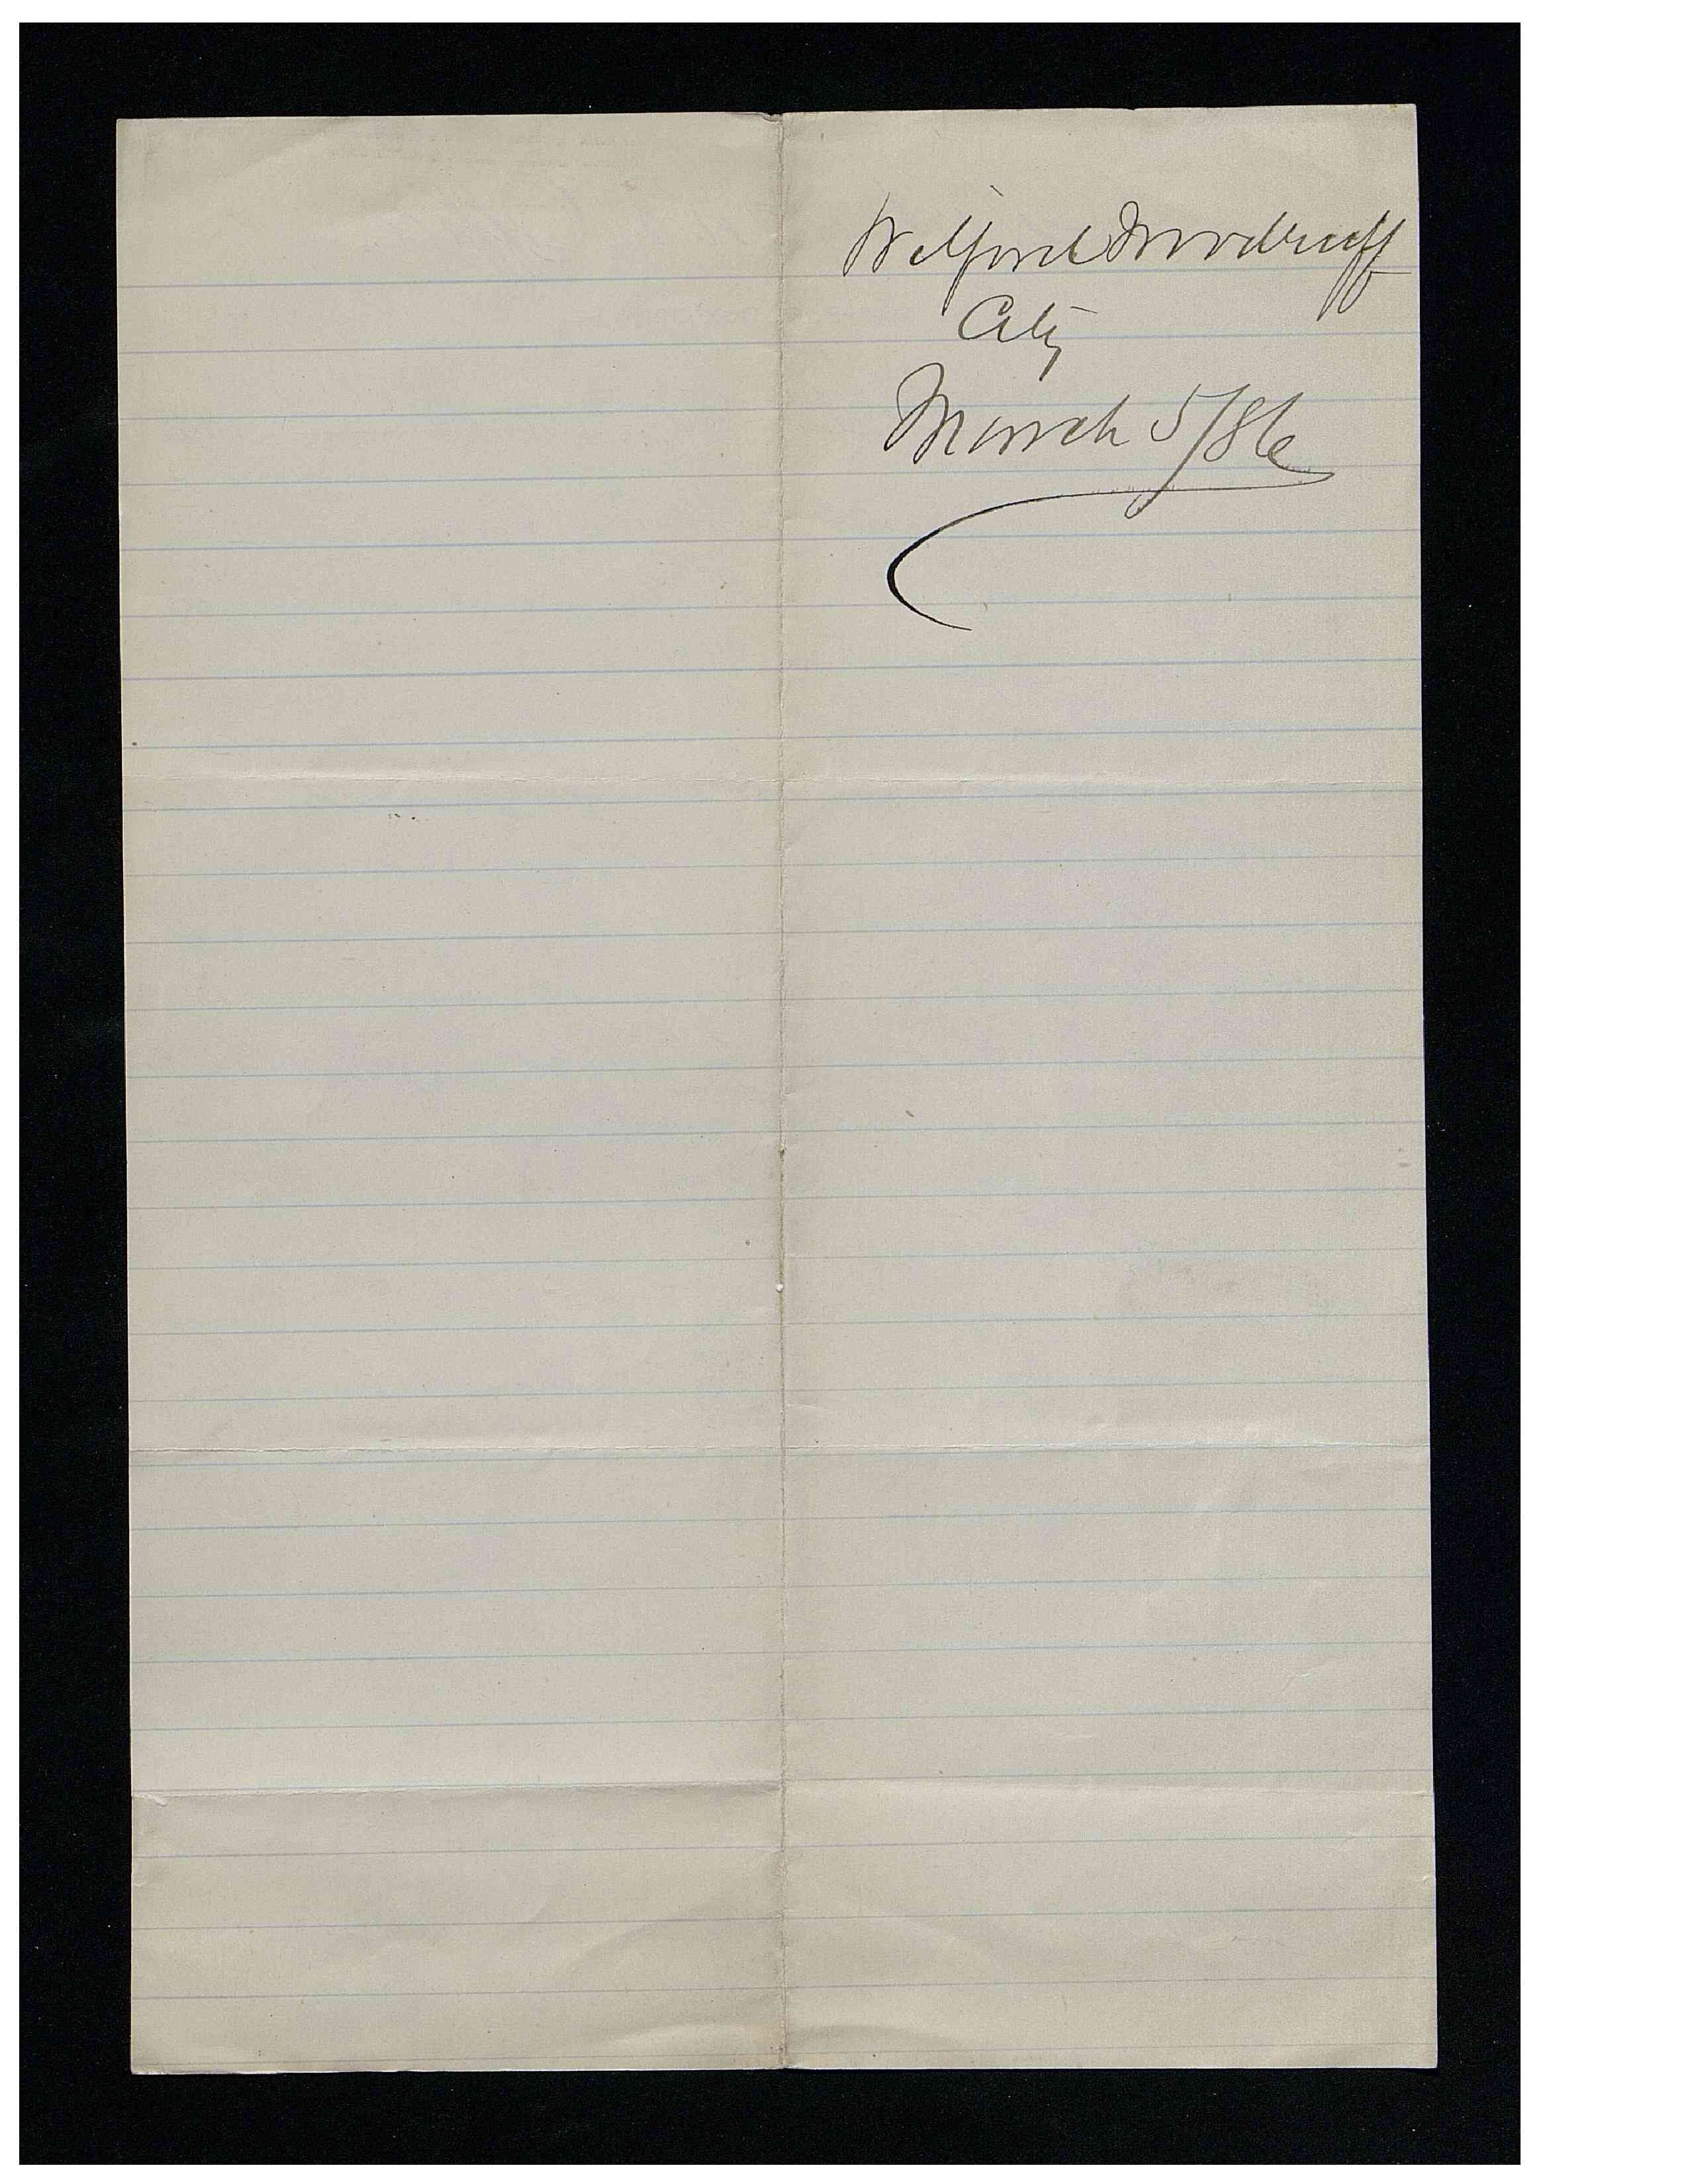 Welford Woodruff
City
March 5/86